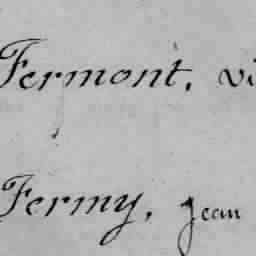 Fermont, vi
Fermy, Jean